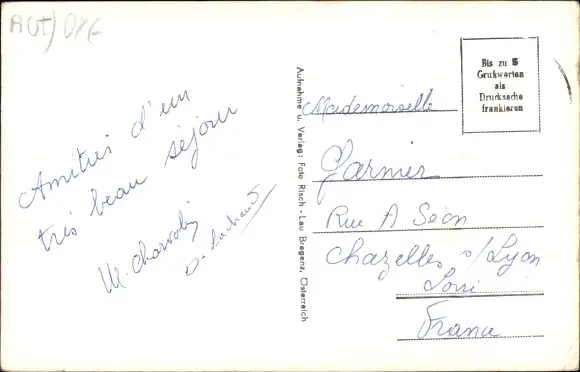 AUT) 
Amitiés d'un
très beau séjour
M. Charvolin
D. Lachaud
Aufnahme u. Verlag: Foto Risch - Lau Bregenz, Österreich
Bis zu 5
Grußworten
als
Drucksache
frankieren
Mademoiselle
Garnier
Rue A Séon
Chazelles s/Lyon
Loire
France